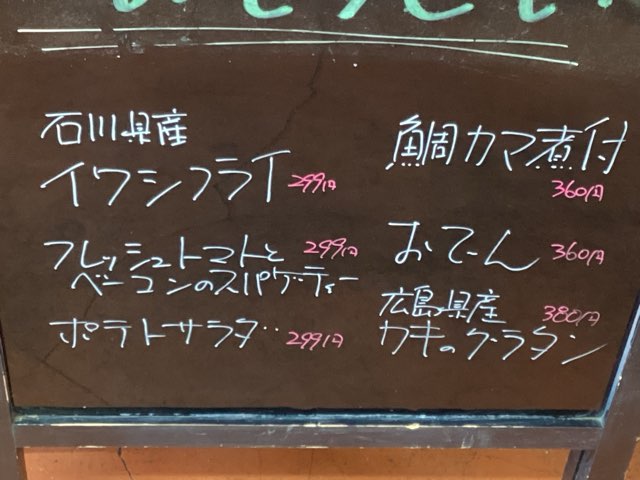 石川県産
イワシフライ 299円
フレッシュトマトと 299円
ベーコンのスパゲティー
ポテトサラダ 299円
鯛カマ煮付
360円
おでん 360円
広島県産 380円
カキのグラタン